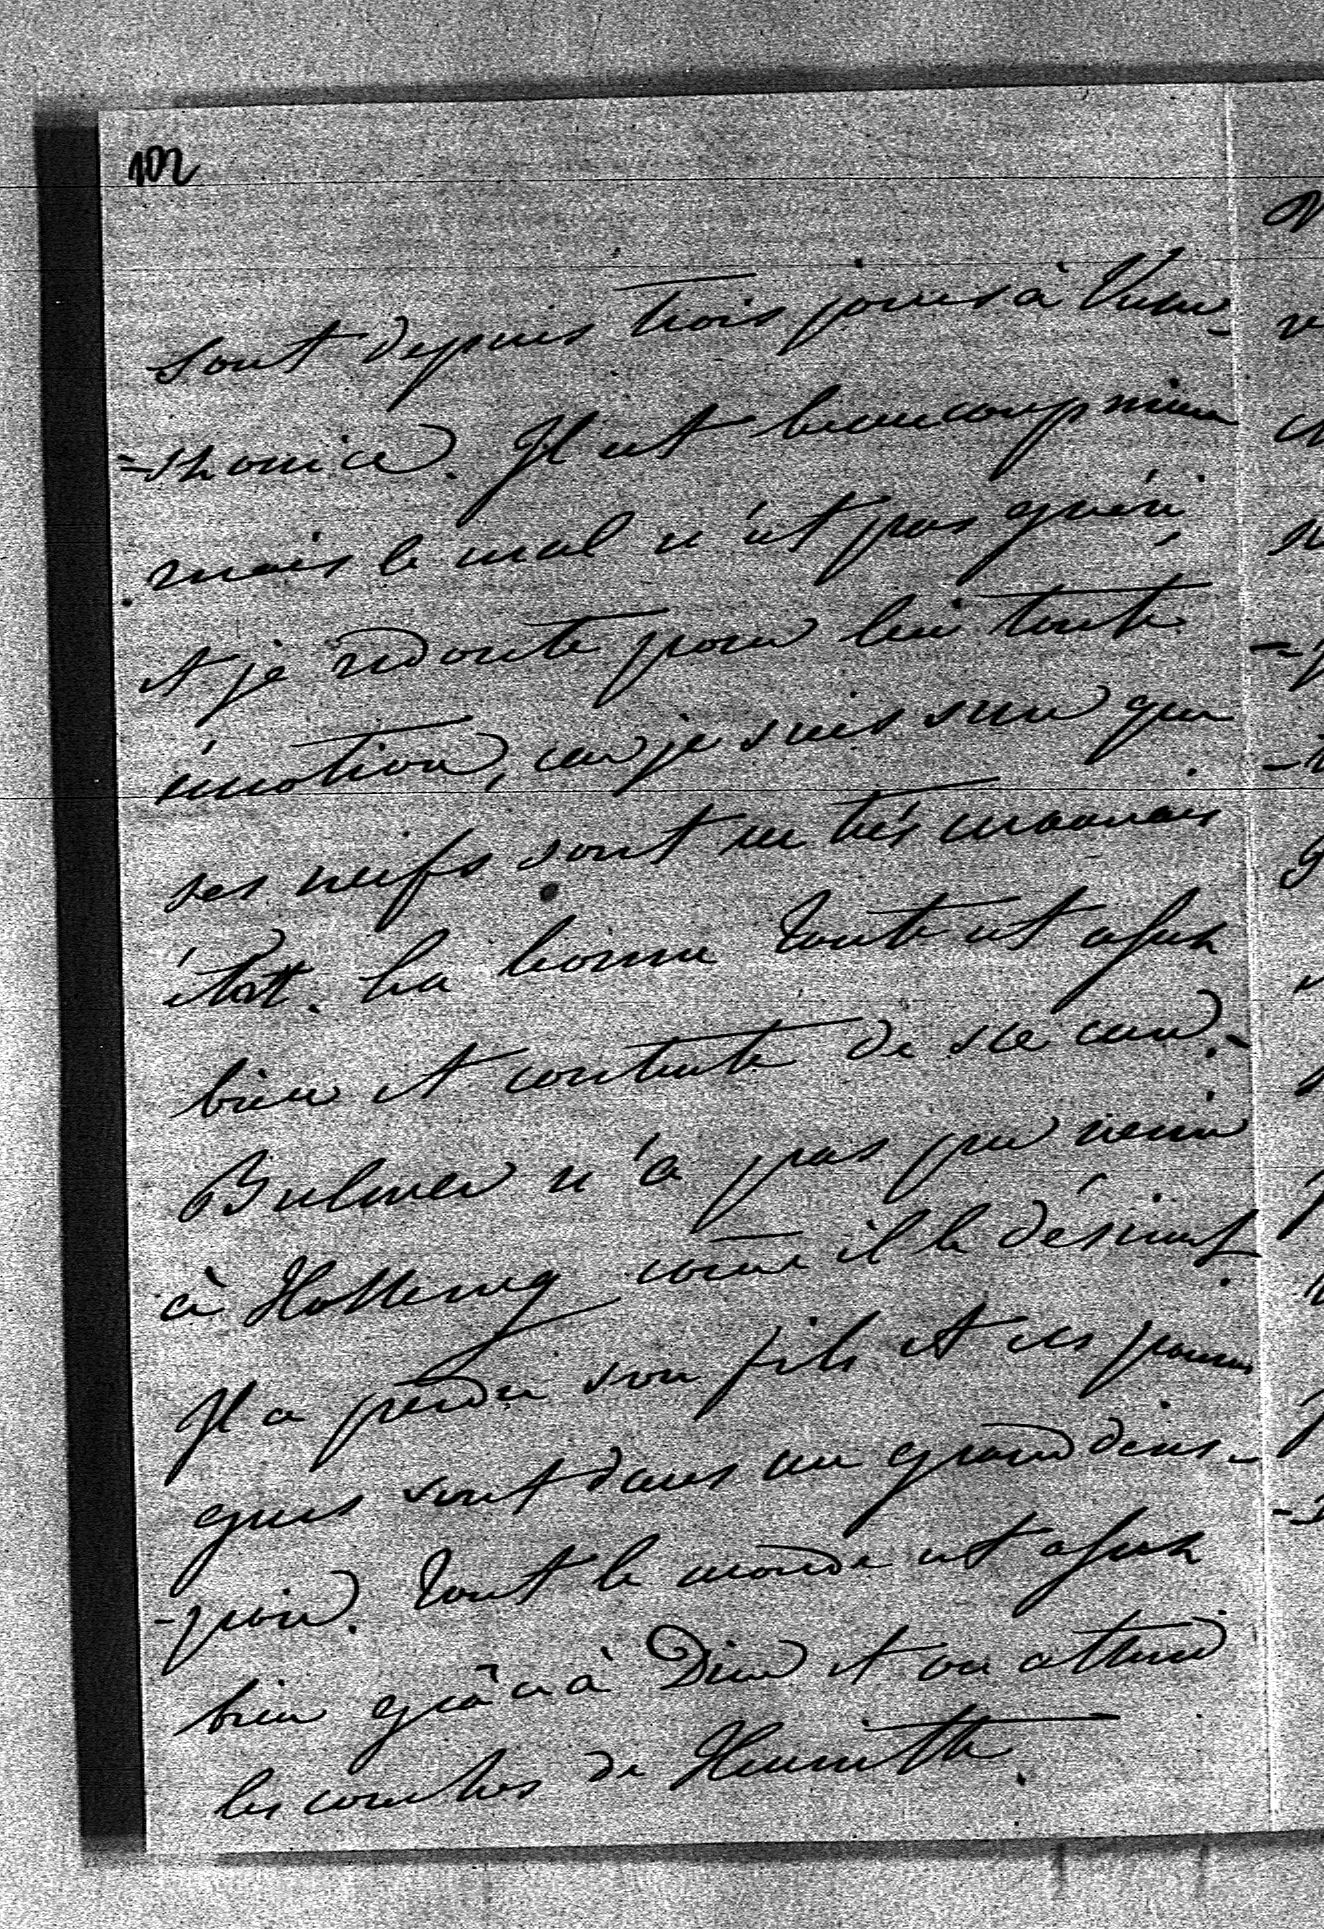 102
sont depuis trois jours à
Il est beaucoup mieux
mais le mal n'est pas guéri
et je redoute pour lui toute
émotion, car je suis sure que
ses nerfs sont en très mauvais
état. La bonne Toute est assez
bien et contente de sa cure.-
Bulwer n'a pas pu venir
à comme il le désirait.
Il a perdu son fils et ces pauvres
gens sont dans un grand déses-
-poir. Tout le monde est assez
bien grâce à Dieu et on attend
les couches de Henriette.